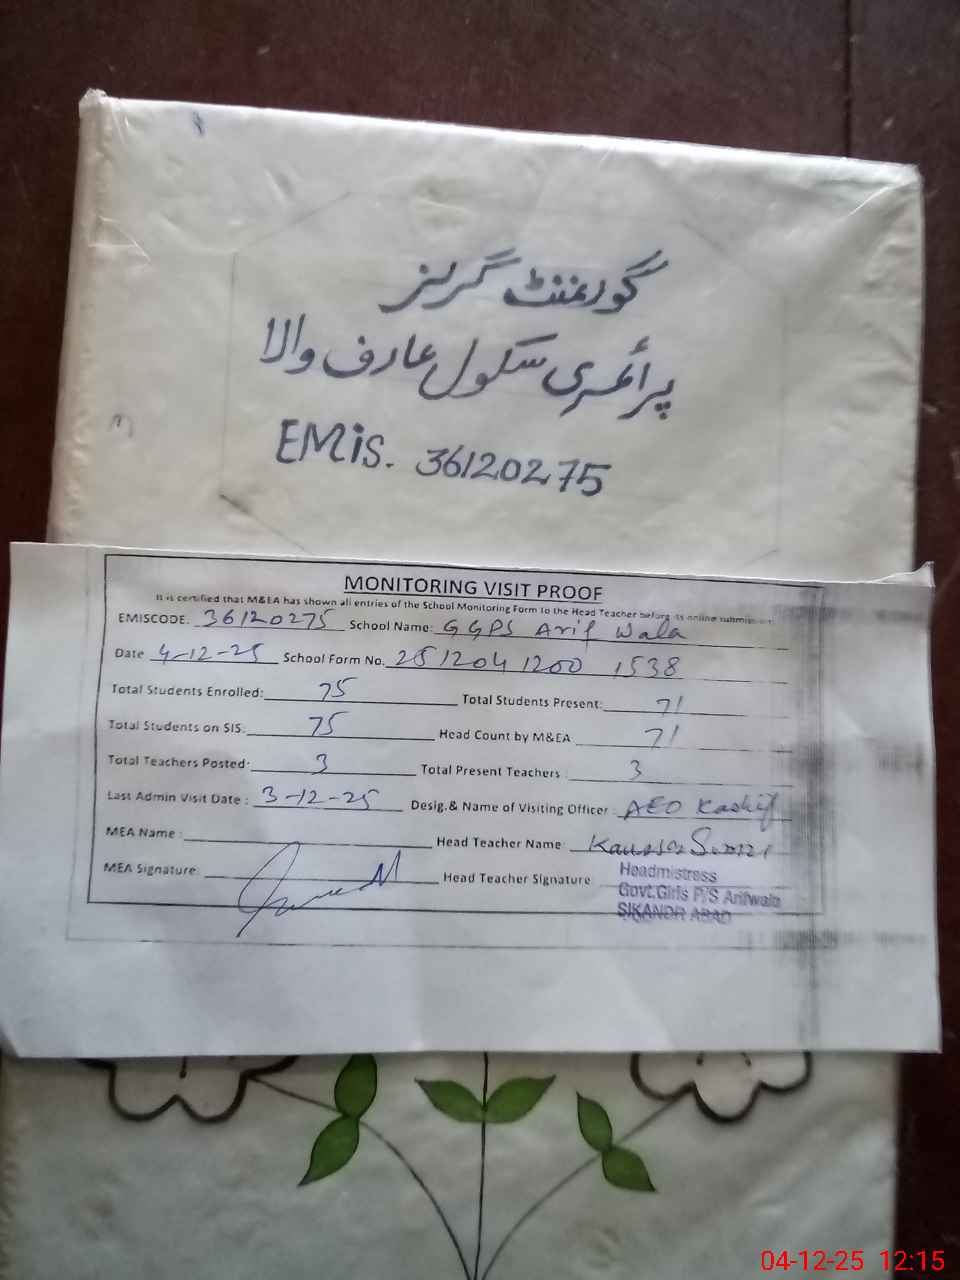 گورنمنٹ گرلز
پرائمری سکول عارف والا
EMiS. 36120275
MONITORING VISIT PROOF
It is certified that M&EA has shown all entries of the School Monitoring Form to the Head Teacher before its online submission
EMISCODE: 36120275 School Name: GGPS Arif wala
Date 4-12-25 School Form No. 251204 1200 1538
Total Students Enrolled: 75 Total Students Present: 71
Total Students on SIS: 75 Head Count by M&EA 71
Total Teachers Posted: 3 Total Present Teachers : 3
Last Admin Visit Date : 3-12-25 Desig.& Name of Visiting Officer : AEO Kashif
MEA Name : Head Teacher Name:
MEA Signature: Head Teacher Signature
Headmistress
Govt.Girls P/S Arifwala
SIKANDR ABAD
04-12-25 12:15